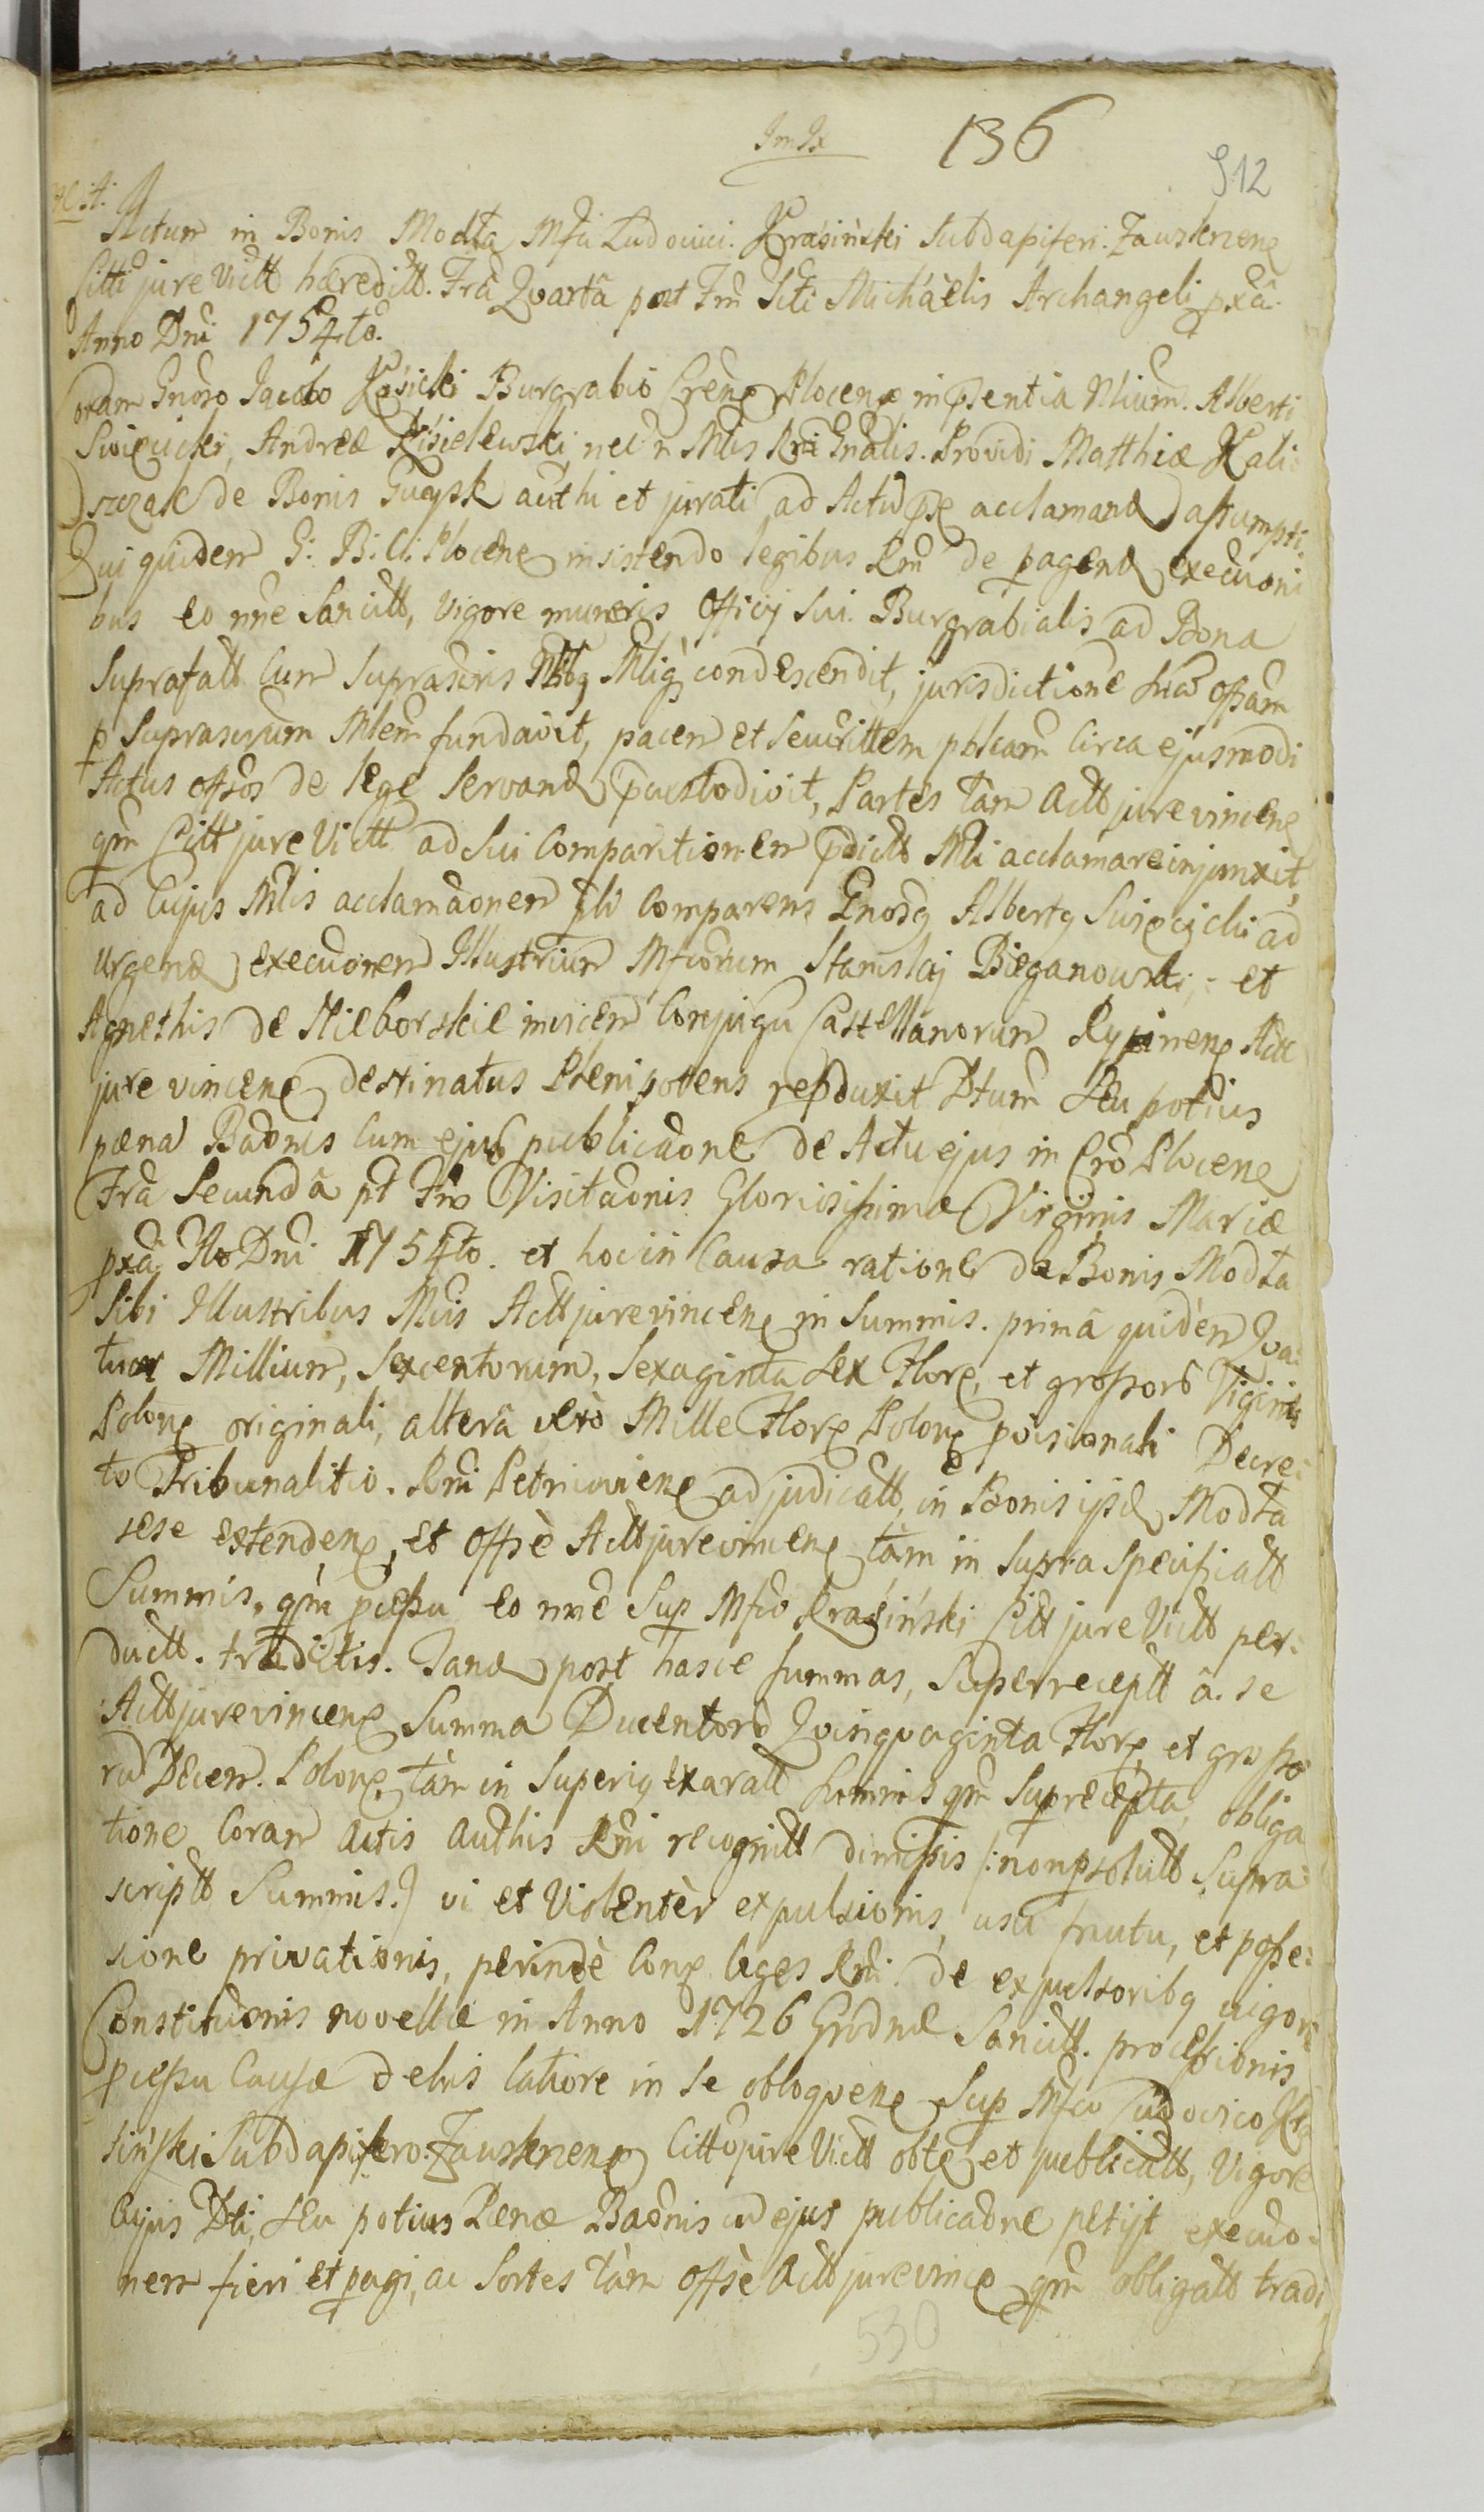 ImIx 136
512
A: A:
Actum in Bonis Modła Mfci Ludovici Krasiński Subdapiferi Zauskrzenẽ
Citti jure Victt hæreditt. Frã Qvartâ post Fm Scti Michäelis Archangeli pxâ
Anno Dni 1754to.
Coram Gnoso Jacobo Kosicki Burgrabio Crenẽ Plocenẽ in pñtentia Nlium. Alberti
Swięcicki, Andreæ Kisielewski nec'n Mlis Rni Gnalis. Providi Matthiæ Kali-
szczak de Bonis Guysk authi et jurati ad Actũ pñtẽ acclamand assumpti.
Qui quidem G: B: C: Plocenẽ insistendo legibus Rni de pagend execuoni
bus eo nne Sancitt, vigore muneris Officij Sui Burgrabialis ad Bona
Suprafatt cum Suprascris Nlibq Mliq condescendit, jurisdictione suã offsam
p Suprascrum Mlem fundavit, pacem et Securittem pblcam circa ejusmodi
Actus offsos de lege Servand pcustodivit, Partes tam Actt jurevincenẽ
qm Citt jure Victt ad Sui Comparitionem pdictt Mli acclamare injunxit,
ad Cujus Mlis acclamãonem Ibi Comparens Gnosq Albertq Swięcicki ad
urgend execuonem Illustrium Mfcorum Stanislaj Bieganowski, et
Agnethis de Nieborskie invicem Conjugũ Castellanorum Rypinenẽ Actt
jure vincenẽ destinatus Plenipotens repduxit Dtum seu potius
pæna Baonis cum ejus publicaone de Actu ejus in Cro Plocenẽ
Frâ Secundâ pt Fm Visitaonis Gloriosissimæ Virginis Mariæ
pxâ Ao Dni 1754to. et hoc in Causa ratione de Bonis Modła
Sibi Illustribus Mcis Actt jurevincenẽ in Summis. primâ quidèm Qva-
tuor Millium, Sexcentorum, Sexaginta sex Florẽ, et grossorũ Viginti
Polonẽ originali, alterâ verò Mille Florẽ Polonẽ pvisionali Decre-
to Tribunalitio. Rni Petricovienẽ adjudicatt, in Bonis ipse Modła
sese extendenẽ, et offsè Actt jurevincenẽ tàm in supra specificatt
Summis, qm pcessu eo nne Sup Mfco Krasiński Citt jure Victt per-
ductt. traditis. Tand post hasce summas, Superreceptt â se
Actt jurevincenẽ Summa Ducentorũ Qvinqvaginta Florẽ et grosso
rũ Decem. Polonẽ, tàm in Superiq exaratt Summis qm Suprecepta, obliga
tione Coram Actis Authis Rni recognitt dimissis /:non psolutt Supra
scriptt Summis:/ vi et Violentèr expulsionis, usu fructu, et posse-
sione privationis, perindè Conẽ leges Rni de expulsoribq vigore
Constituonis novellæ in Anno 1726 Grodnæ Sancitt. processionis
pcessu Causæ Debis latiore in se obloqvenẽ Sup Mfco Ludovico Kra
siński Subdapifero Zauskrzenẽ Citto jure Victt obtẽ et publicatt, Vigore
Cujus Dti, seu potius Pænæ Baonis cũ ejus publicaone petijt execuo-
nem fieri et pagi, ac Sortes tàm offsè Actt jurevincẽ qm obligatt tradi
530